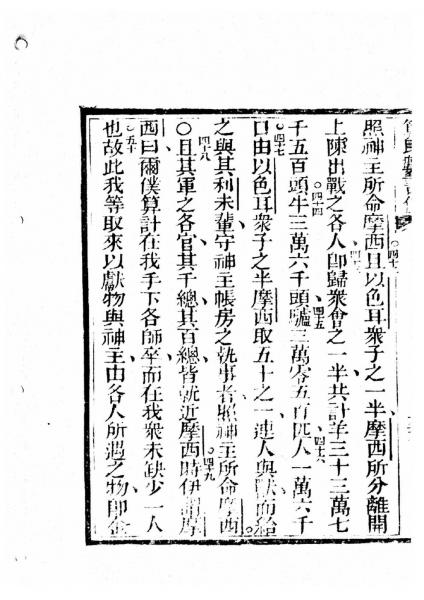 照神主所命摩西且以色耳衆子之一半摩西所分離開
上陳出戰之各人即歸衆會之一半共計羊三十三萬七
千五百頭○四十四牛三萬六千頭四五驢三萬零五百匹四十六人一萬六千
○四七口由以色耳衆子之半摩西取五十之一連人與獸而給
之與其利未輩守神主帳房之執事者照神主所命摩西
四十八○且其軍之各官其千總其百總皆就近摩西時○四九伊謂摩
西曰爾僕算計在我手下各師卒而在我衆未缺少一人
也○五十故此我等取來以獻物與神主由各人所遇之物即金